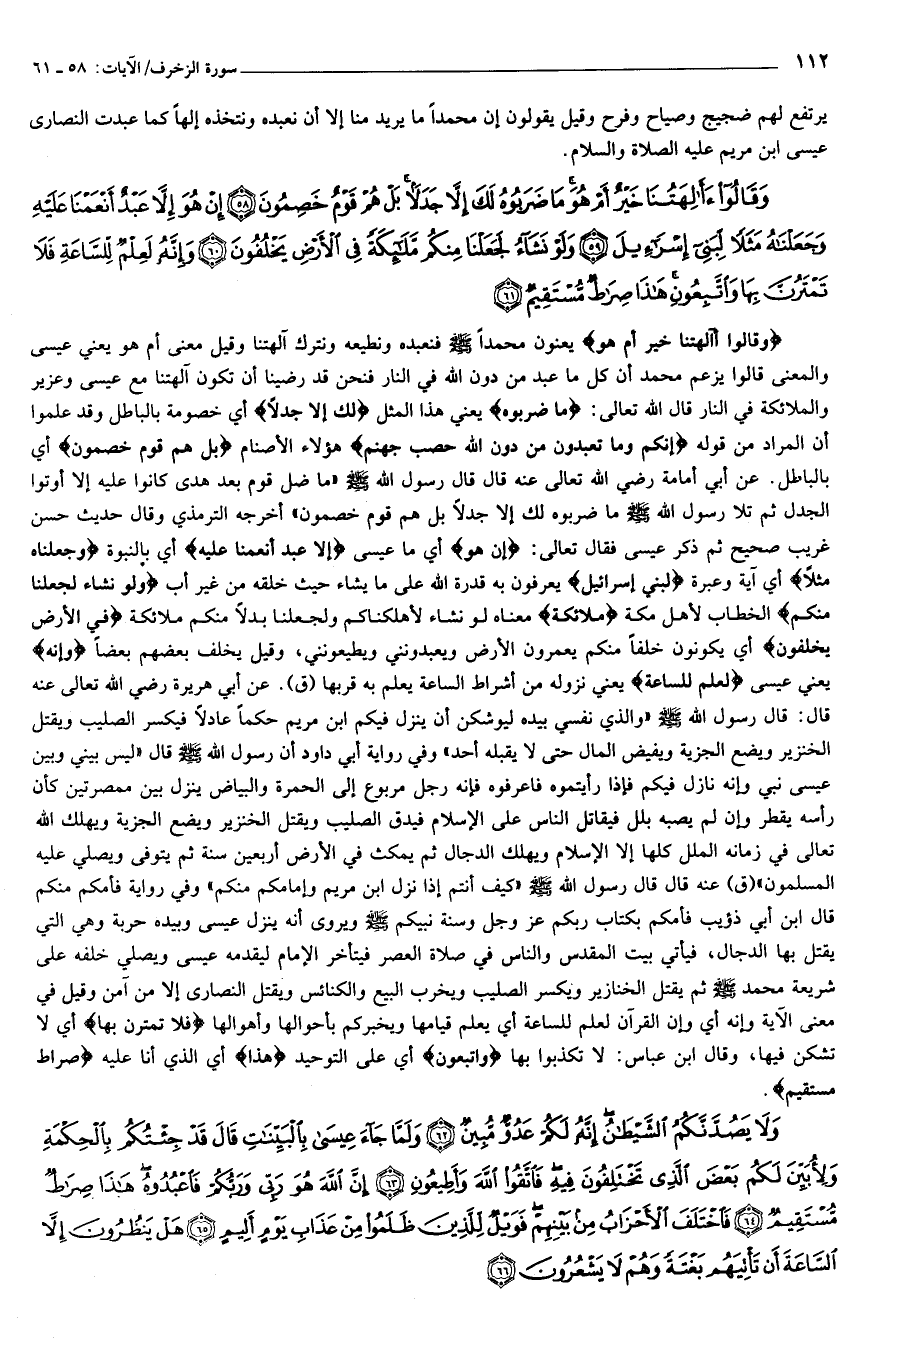 ١١٢ سورة الزخرف/ الآيات: ٥٨ ـ ٦١
يرتفع لهم ضجيج وصياح وفرح وقيل يقولون إن محمداً ما يريد منا إلا أن نعبده ونتخذه إلهاً كما عبدت النصارى
عيسى ابن مريم عليه الصلاة والسلام.
وَقَالُوٓا۟ ءَأَٰلِهَتُنَا خَيْرٌ أَمْ هُوَ ۚ مَا ضَرَبُوهُ لَكَ إِلَّا جَدَلًۢا ۚ بَلْ هُمْ قَوْمٌ خَصِمُونَ ٥٨ إِنْ هُوَ إِلَّا عَبْدٌ أَنْعَمْنَا عَلَيْهِ
وَجَعَلْنَٰهُ مَثَلًا لِّبَنِىٓ إِسْرَٰٓءِيلَ ٥٩ وَلَوْ نَشَآءُ لَجَعَلْنَا مِنكُم مَّلَٰٓئِكَةً فِى ٱلْأَرْضِ يَخْلُفُونَ ٦٠ وَإِنَّهُۥ لَعِلْمٌ لِّلسَّاعَةِ فَلَا
تَمْتَرُنَّ بِهَا وَٱتَّبِعُونِ ۚ هَٰذَا صِرَٰطٌ مُّسْتَقِيمٌ ٦١
﴿وقالوا أآلهتنا خير أم هو﴾ يعنون محمداً ﷺ فنعبده ونطيعه ونترك آلهتنا وقيل معنى أم هو يعني عيسى
والمعنى قالوا يزعم محمد أن كل ما عبد من دون الله في النار فنحن قد رضينا أن تكون آلهتنا مع عيسى وعزير
والملائكة في النار قال الله تعالى: ﴿ما ضربوه﴾ يعني هذا المثل ﴿لك إلا جدلاً﴾ أي خصومة بالباطل وقد علموا
أن المراد من قوله ﴿إنكم وما تعبدون من دون الله حصب جهنم﴾ هؤلاء الأصنام ﴿بل هم قوم خصمون﴾ أي
بالباطل. عن أبي أمامة رضي الله تعالى عنه قال قال رسول الله ﷺ «ما ضل قوم بعد هدى كانوا عليه إلا أوتوا
الجدل ثم تلا رسول الله ﷺ ما ضربوه لك إلا جدلاً بل هم قوم خصمون» أخرجه الترمذي وقال حديث حسن
غريب صحيح ثم ذكر عيسى فقال تعالى: ﴿إن هو﴾ أي ما عيسى ﴿إلا عبد أنعمنا عليه﴾ أي بالنبوة ﴿وجعلناه
مثلاً﴾ أي آية وعبرة ﴿لبني إسرائيل﴾ يعرفون به قدرة الله على ما يشاء حيث خلقه من غير أب ﴿ولو نشاء لجعلنا
منكم﴾ الخطاب لأهل مكة ﴿ملائكة﴾ معناه لو نشاء لأهلكناكم ولجعلنا بدلاً منكم ملائكة ﴿في الأرض
يخلفون﴾ أي يكونون خلفاً منكم يعمرون الأرض ويعبدونني ويطيعونني، وقيل يخلف بعضهم بعضاً ﴿وإنه﴾
يعني عيسى ﴿لعلم للساعة﴾ يعني نزوله من أشراط الساعة يعلم به قربها (ق). عن أبي هريرة رضي الله تعالى عنه
قال: قال رسول الله ﷺ «والذي نفسي بيده ليوشكن أن ينزل فيكم ابن مريم حكماً عادلاً فيكسر الصليب ويقتل
الخنزير ويضع الجزية ويفيض المال حتى لا يقبله أحد» وفي رواية أبي داود أن رسول الله ﷺ قال «ليس بيني وبين
عيسى نبي وإنه نازل فيكم فإذا رأيتموه فاعرفوه فإنه رجل مربوع إلى الحمرة والبياض ينزل بين ممصرتين كأن
رأسه يقطر وإن لم يصبه بلل فيقاتل الناس على الإسلام فيدق الصليب ويقتل الخنزير ويضع الجزية ويهلك الله
تعالى في زمانه الملل كلها إلا الإسلام ويهلك الدجال ثم يمكث في الأرض أربعين سنة ثم يتوفى ويصلي عليه
المسلمون»(ق) عنه قال قال رسول الله ﷺ «كيف أنتم إذا نزل ابن مريم وإمامكم منكم» وفي رواية فأمكم منكم
قال ابن أبي ذؤيب فأمكم بكتاب ربكم عز وجل وسنة نبيكم ﷺ ويروى أنه ينزل عيسى وبيده حربة وهي التي
يقتل بها الدجال، فيأتي بيت المقدس والناس في صلاة العصر فيتأخر الإمام ليقدمه عيسى ويصلي خلفه على
شريعة محمد ﷺ ثم يقتل الخنازير ويكسر الصليب ويخرب البيع والكنائس ويقتل النصارى إلا من آمن وقيل في
معنى الآية وإنه أي وإن القرآن لعلم للساعة أي يعلم قيامها ويخبركم بأحوالها وأهوالها ﴿فلا تمترن بها﴾ أي لا
تشكن فيها، وقال ابن عباس: لا تكذبوا بها ﴿واتبعون﴾ أي على التوحيد ﴿هذا﴾ أي الذي أنا عليه ﴿صراط
مستقيم﴾.
وَلَا يَصُدَّنَّكُمُ ٱلشَّيْطَٰنُ ۖ إِنَّهُۥ لَكُمْ عَدُوٌّ مُّبِينٌ ٦٢ وَلَمَّا جَآءَ عِيسَىٰ بِٱلْبَيِّنَٰتِ قَالَ قَدْ جِئْتُكُم بِٱلْحِكْمَةِ
وَلِأُبَيِّنَ لَكُم بَعْضَ ٱلَّذِى تَخْتَلِفُونَ فِيهِ ۖ فَٱتَّقُوا۟ ٱللَّهَ وَأَطِيعُونِ ٦٣ إِنَّ ٱللَّهَ هُوَ رَبِّى وَرَبُّكُمْ فَٱعْبُدُوهُ ۚ هَٰذَا صِرَٰطٌ
مُّسْتَقِيمٌ ٦٤ فَٱخْتَلَفَ ٱلْأَحْزَابُ مِنۢ بَيْنِهِمْ ۖ فَوَيْلٌ لِّلَّذِينَ ظَلَمُوا۟ مِنْ عَذَابِ يَوْمٍ أَلِيمٍ ٦٥ هَلْ يَنظُرُونَ إِلَّا
ٱلسَّاعَةَ أَن تَأْتِيَهُم بَغْتَةً وَهُمْ لَا يَشْعُرُونَ ٦٦